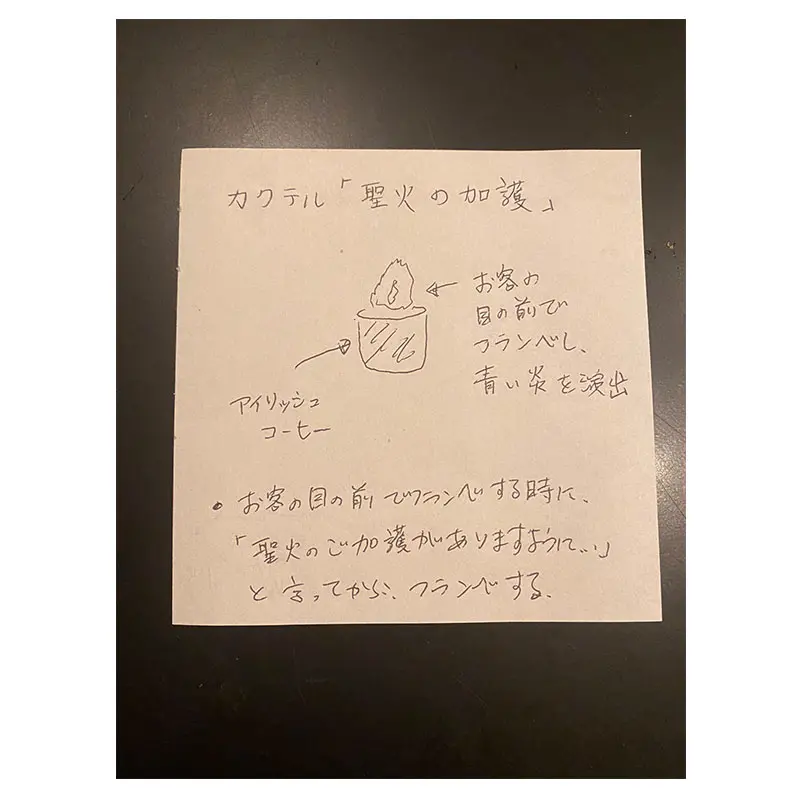 カクテル「聖火の加護」
お客の
目の前で
フランベし、
青い炎を演出
アイリッシュ
コーヒー
• お客の目の前でフランベする時に、
「聖火のご加護がありますように…」
と言ってから、フランベする。